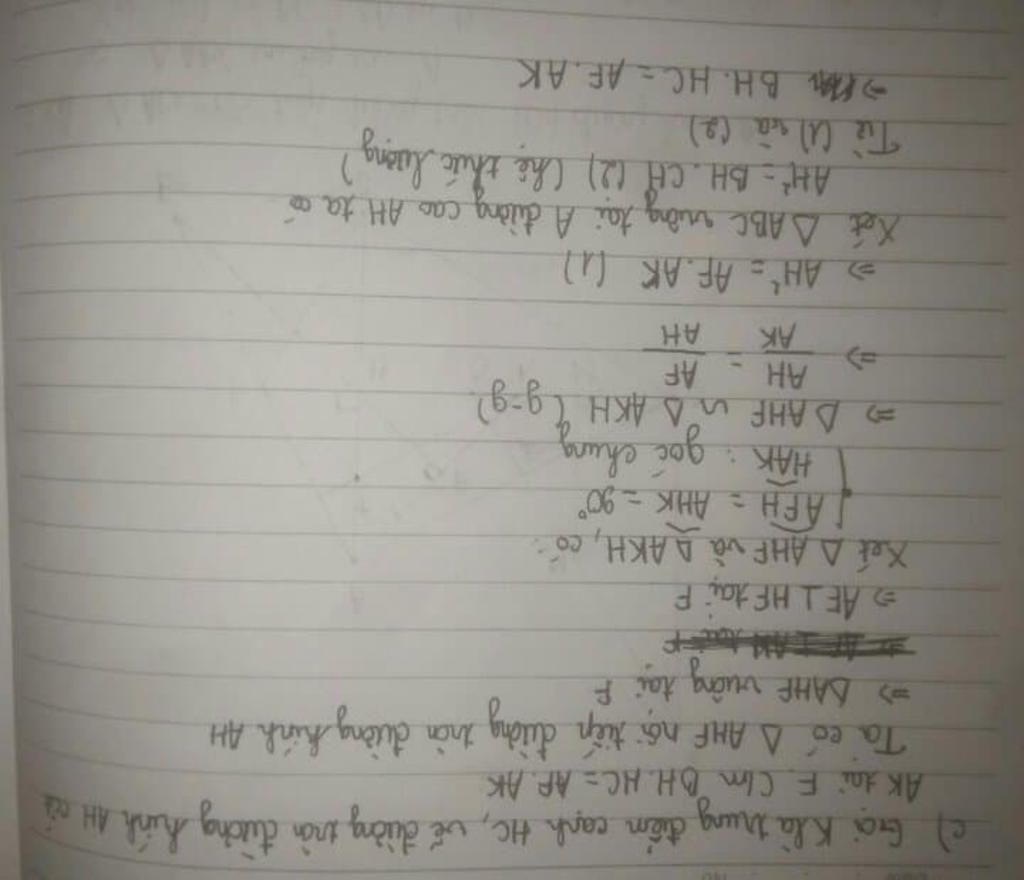 c) Gọi K là trung điểm cạnh HC, vẽ đường tròn đường kính AH cắt
AK tại F. C/m BH.HC = AF.AK
Ta có Δ AHF nội tiếp đường tròn đường kính AH
⇒ ΔAHF vuông tại F
⇒ AF ⊥ HF tại F
Xét Δ AHF và Δ AKH, có:
{ AFH = AHK = 90°
HAK : góc chung
⇒ Δ AHF ∽ Δ AKH (g-g)
⇒ AH/AK = AF/AH
⇒ AH² = AF.AK (1)
Xét Δ ABC vuông tại A đường cao AH ta có
AH² = BH.CH (2) (hệ thức lượng)
Từ (1) và (2)
⇒ BH.HC = AF.AK